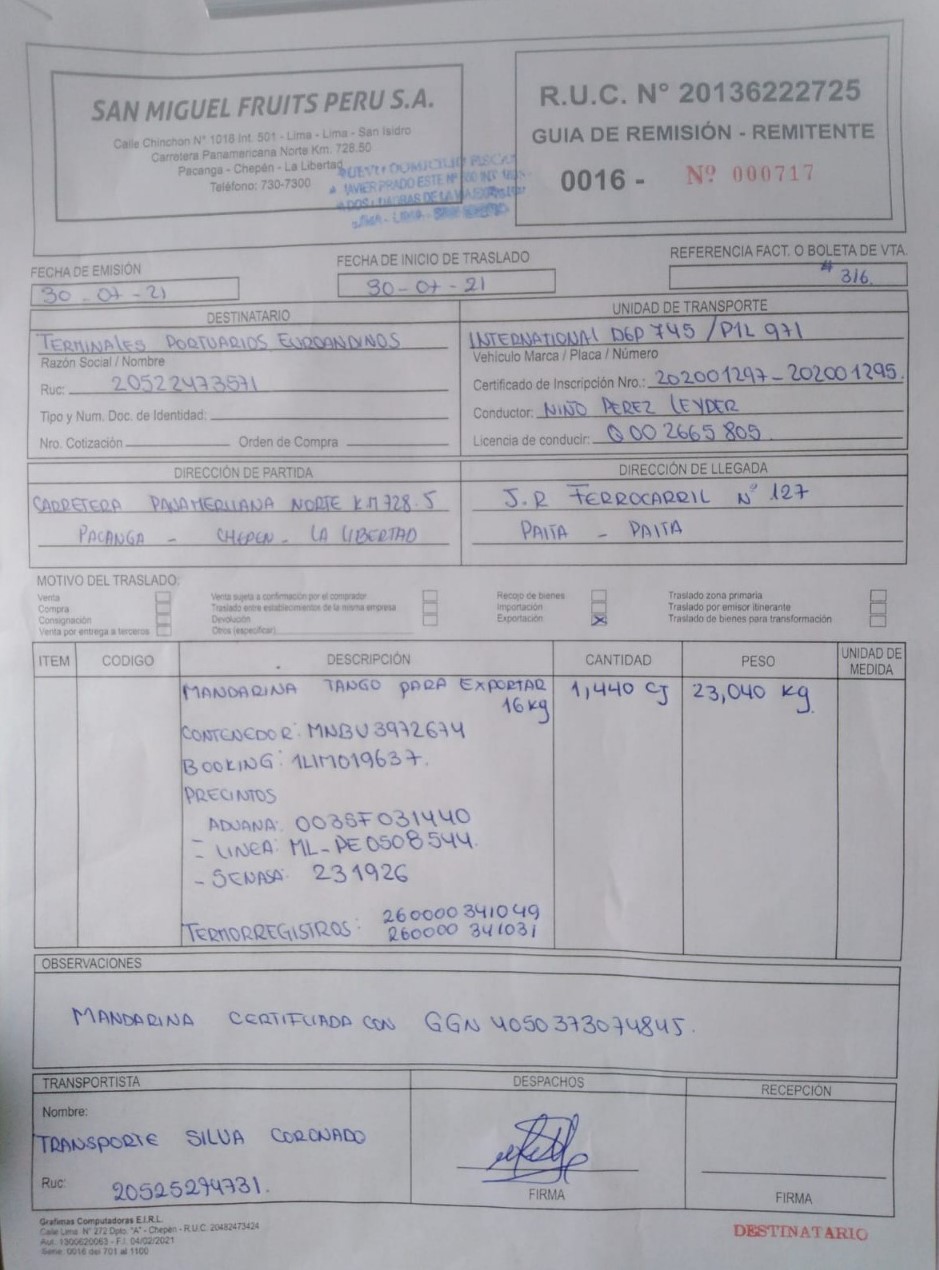 SAN MIGUEL FRUITS PERU S.A.
Calle Chinchon N° 1018 Int. 501 - Lima - Lima - San Isidro
Carretera Panamericana Norte Km. 728.50
Pacanga - Chepén - La Libertad
Teléfono: 730-7300
DOMICILIO FISCAL
JAVIER PRADO ESTE Nº
R.U.C. N° 20136222725
GUIA DE REMISIÓN - REMITENTE
0016 - Nº 000717
FECHA DE EMISIÓN
30-07-21
FECHA DE INICIO DE TRASLADO
30-07-21
REFERENCIA FACT. O BOLETA DE VTA.
# 316.
DESTINATARIO
TERMINALES PORTUARIOS EUROANDINOS
Razón Social / Nombre
Ruc: 20522473571
Tipo y Num. Doc. de Identidad:
Nro. Cotización Orden de Compra
UNIDAD DE TRANSPORTE
INTERNATIONAL D6P 745 / P1L 971
Vehiculo Marca / Placa / Número
Certificado de Inscripción Nro.: 202001297-202001295.
Conductor: NIÑO PEREZ LEYDER
Licencia de conducir: Q002665805
DIRECCIÓN DE PARTIDA
CARRETERA PANAMERICANA NORTE KM 728.5
PACANGA - CHEPEN - LA LIBERTAD
DIRECCIÓN DE LLEGADA
J.R FERROCARRIL Nº 127
PAITA - PAITA
MOTIVO DEL TRASLADO:
Venta
Compra
Consignación
Venta por entrega a terceros
Venta sujeta a confirmación por el comprador
Traslado entre establecimientos de la misma empresa
Devolución
Otros (especificar)
Recojo de bienes
Importación
Exportación X
Traslado zona primaria
Traslado por emisor itinerante
Traslado de bienes para transformación
ITEM CODIGO DESCRIPCIÓN CANTIDAD PESO UNIDAD DE MEDIDA
MANDARINA TANGO PARA EXPORTAR 1,440 CJ 23,040 kg.
16 kg
CONTENEDOR: MNBU3972674
BOOKING: 1LIM019637.
PRECINTOS
ADUANA: 003SF031440
- LINEA: ML-PE0508544.
- SENASA: 231926
TERMORREGISTROS: 260000341049
260000341031
OBSERVACIONES
MANDARINA CERTIFICADA CON GGN 4050373074845.
TRANSPORTISTA
Nombre:
TRANSPORTE SILVA CORONADO
Ruc: 20525294731.
DESPACHOS
FIRMA
RECEPCIÓN
FIRMA
Grafimas Computadoras E.I.R.L.
Calle Lima N° 272 Dpto. "A" - Chepén - R.U.C. 20482473424
Aut. 1300620063 - F.I. 04/02/2021
Serie: 0016 del 701 al 1100
DESTINATARIO